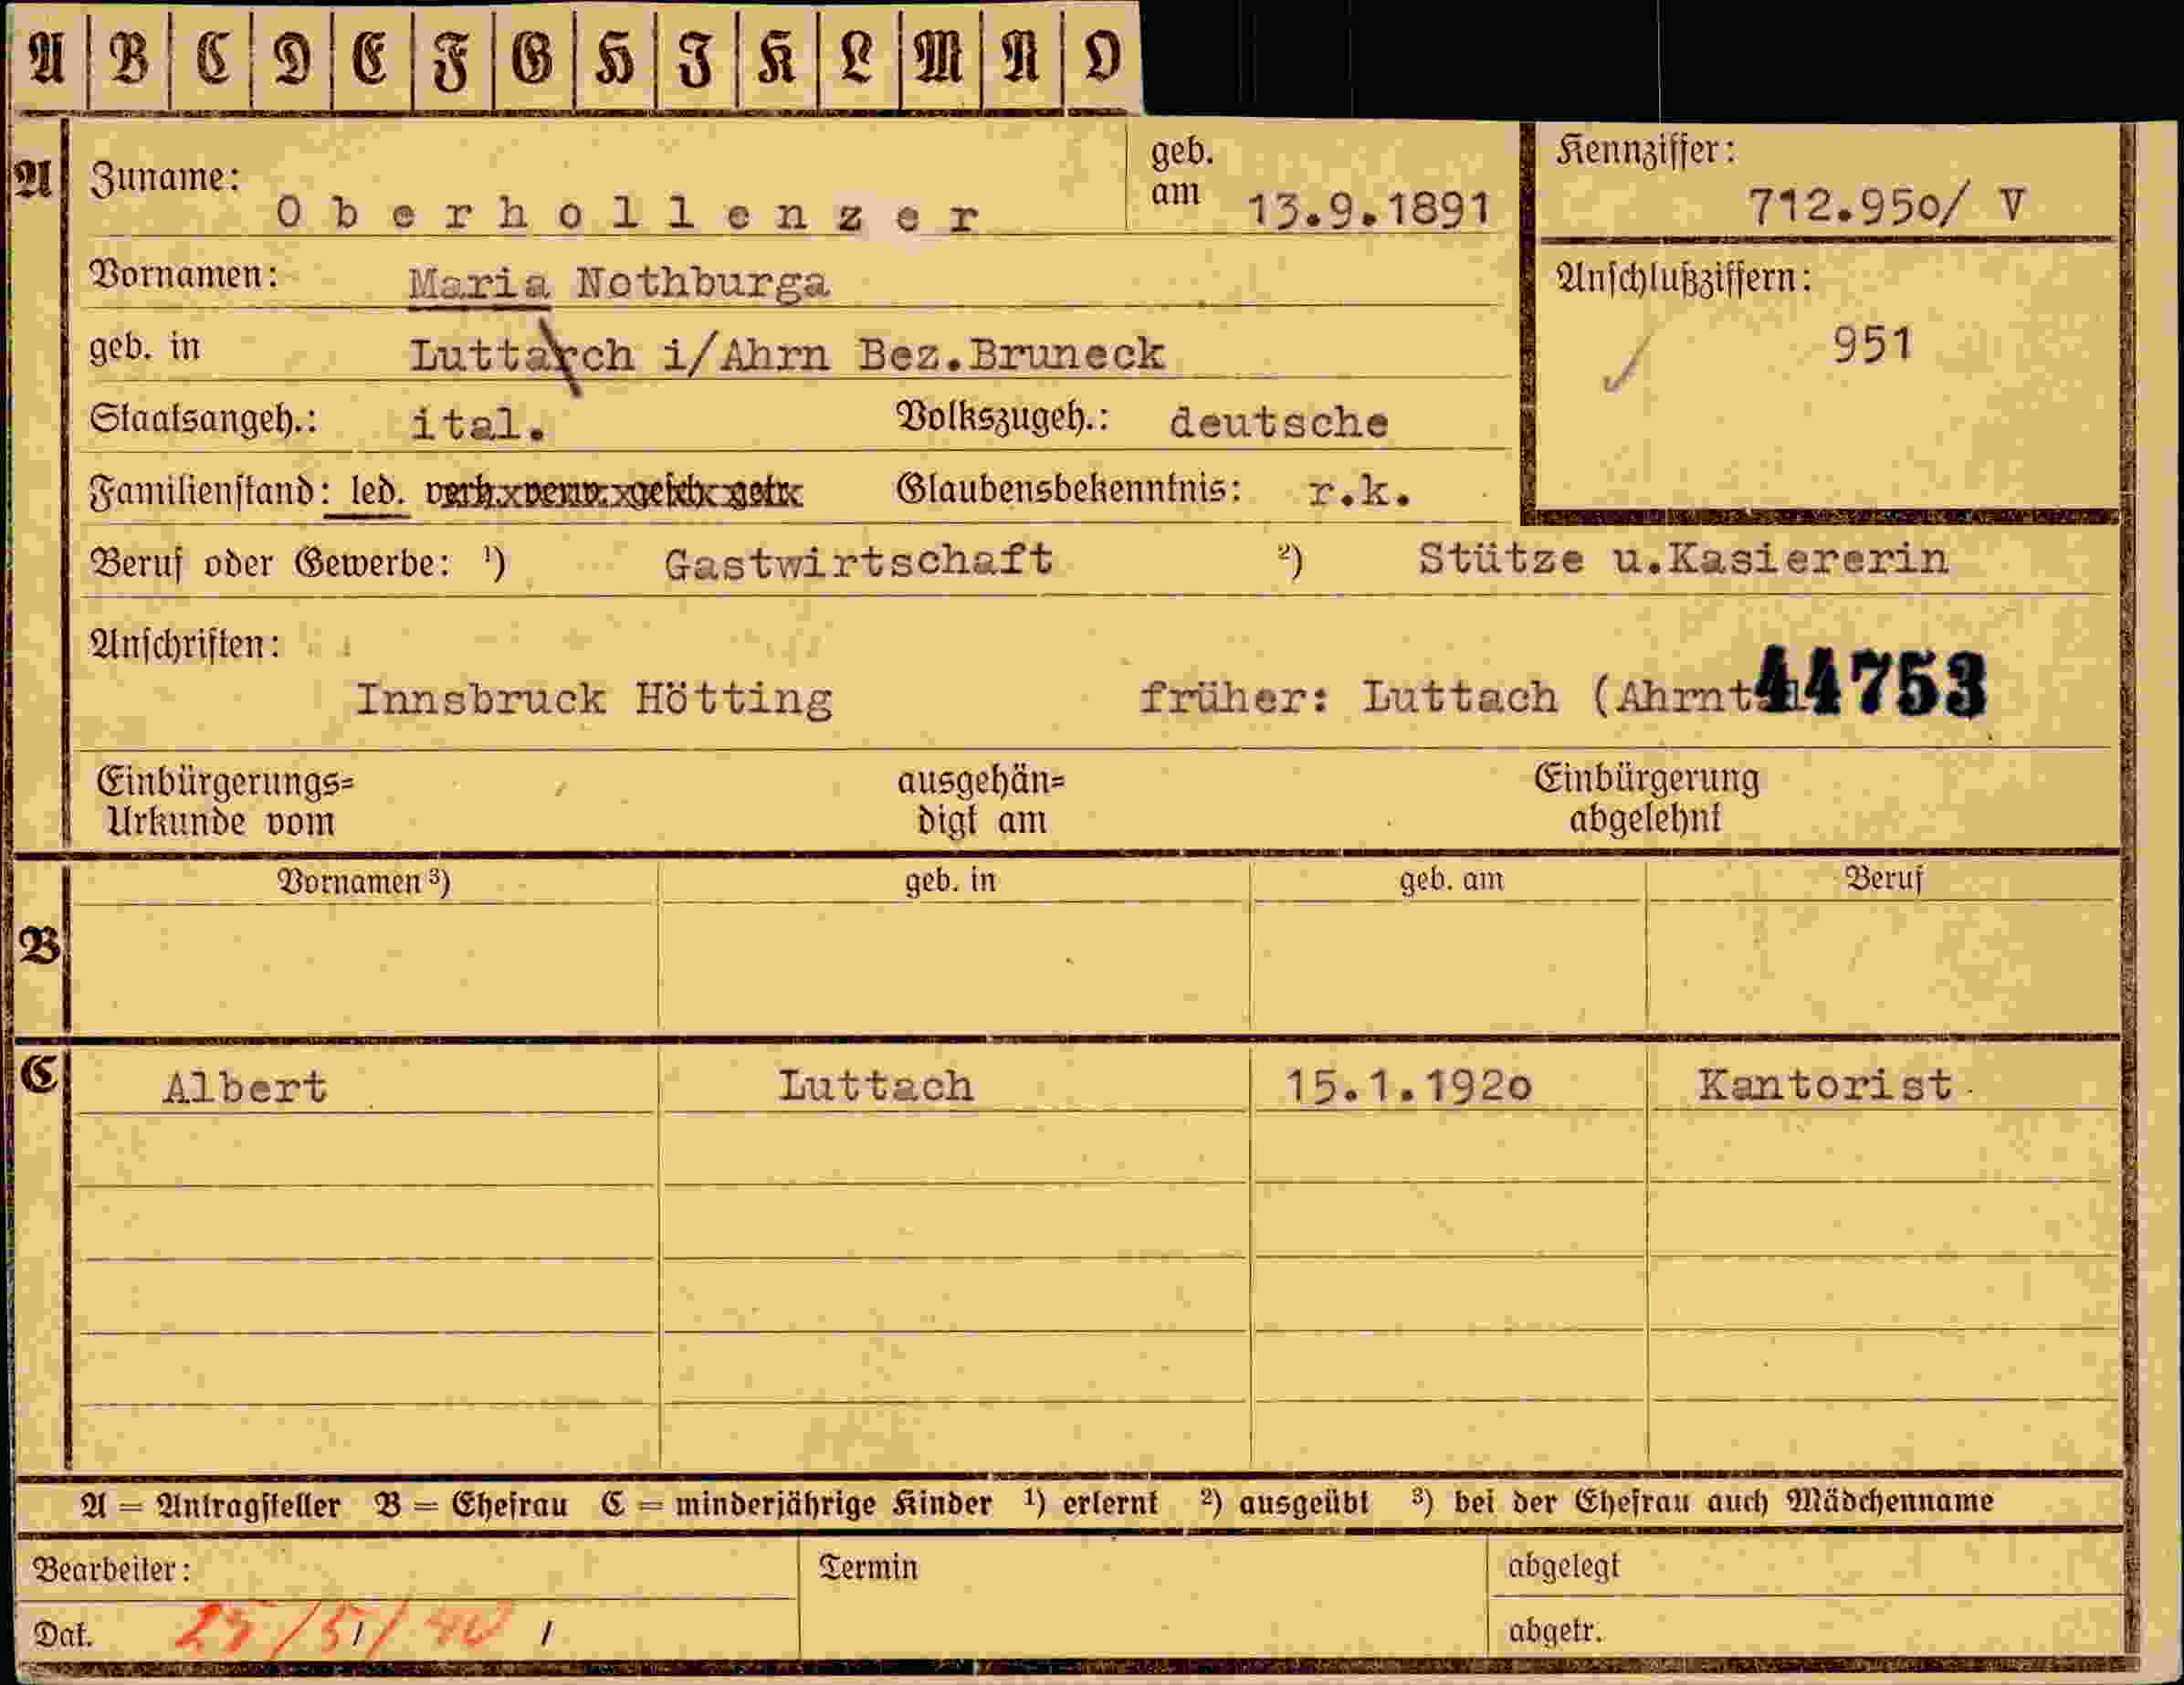 A B C D E F G H I K L M N O
A
Zuname: Oberhollenzer geb. am 13.9.1891
Kennziffer: 712.950/ V
Vornamen: Maria Nothburga
Anschlußziffern: 951
geb. in Luttarch i/Ahrn Bez.Bruneck
Staatsangeh.: ital. Volkszugeh.: deutsche
Familienstand: led. verh. verw. gesch. getr. Glaubensbekenntnis: r.k.
Beruf oder Gewerbe: ¹) Gastwirtschaft ²) Stütze u.Kasiererin
Anschriften:
Innsbruck Hötting früher: Luttach 44753
Einbürgerungs= ausgehän= Einbürgerung
Urkunde vom digt am abgelehnt
Vornamen ³) geb. in geb. am Beruf
B
C Albert Luttach 15.1.1920 Kantorist
A = Antragsteller B = Ehefrau C = minderjährige Kinder ¹) erlernt ²) ausgeübt ³) bei der Ehefrau auch Mädchenname
Bearbeiter: Termin abgelegt
Dat. 25/5/40 abgetr.